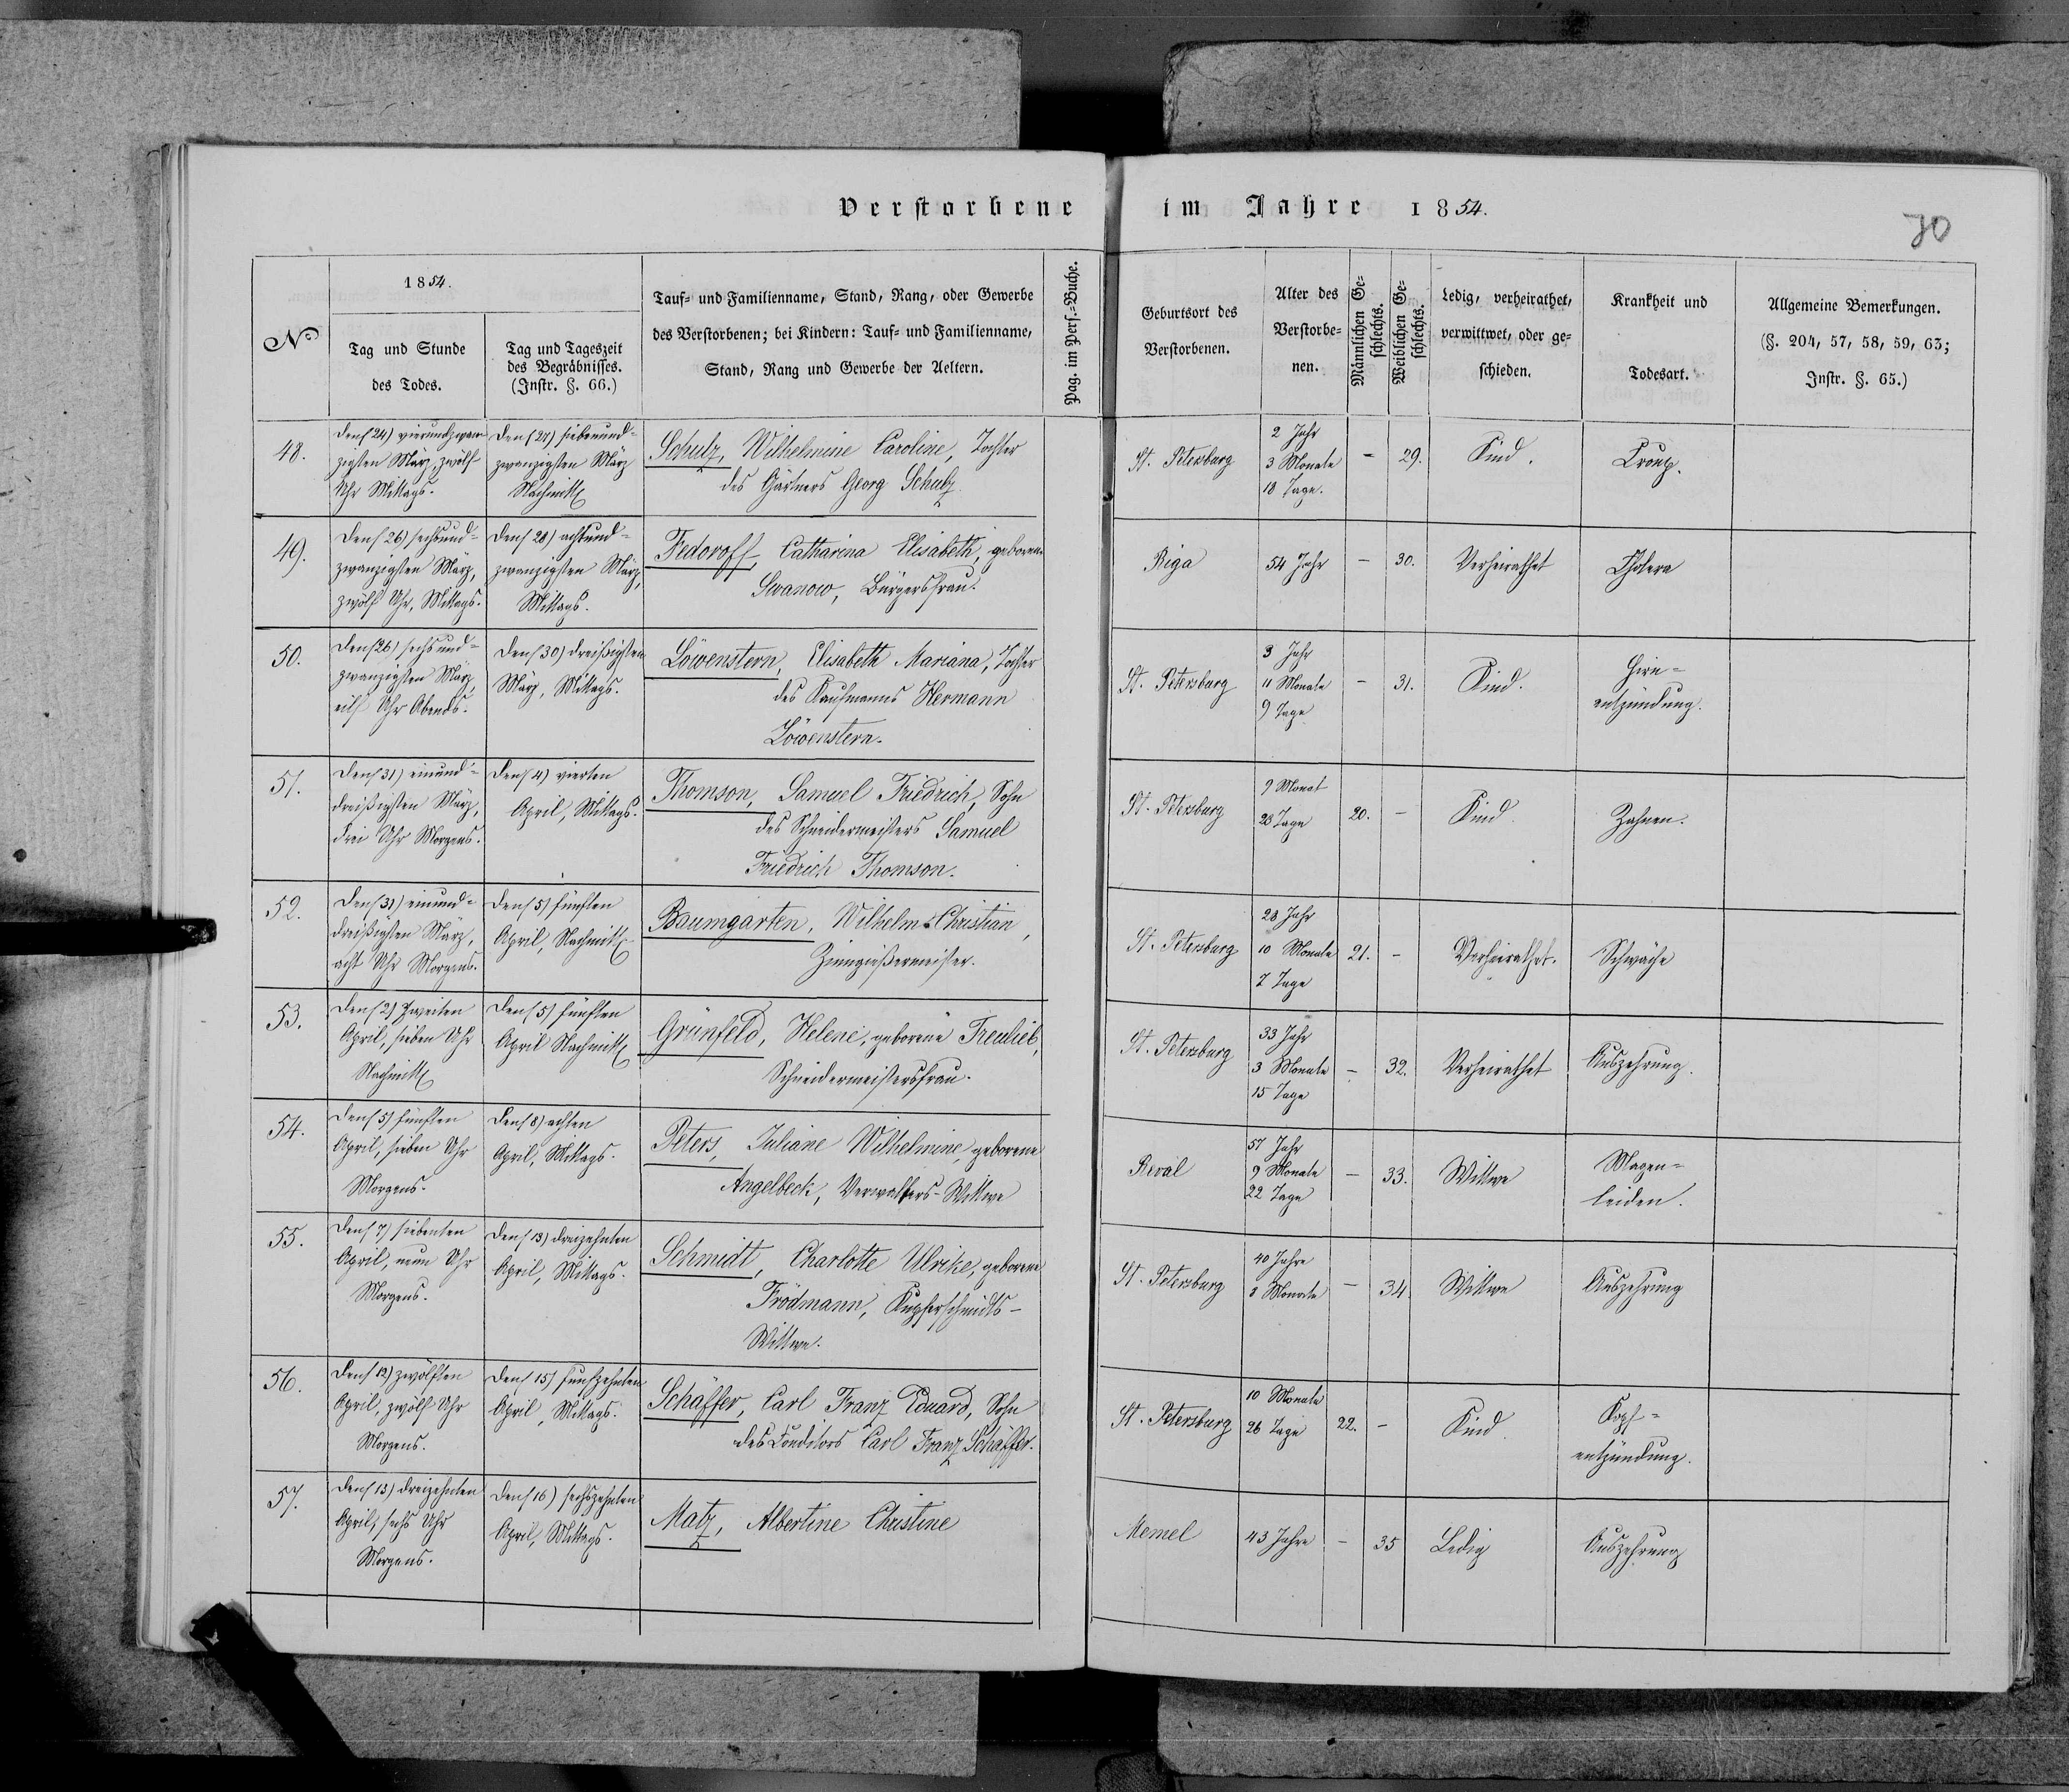 Verstorbene im Jahre 1854.
70
No
1854.
Tag und Stunde
des Todes.
Tag und Tageszeit
des Begräbnisses.
(Instr. §. 66.)
Tauf- und Familienname, Stand, Rang, oder Gewerbe
des Verstorbenen; bei Kindern: Tauf- und Familienname,
Stand, Rang und Gewerbe der Aeltern.
Pag. im Pers.-Buche.
Geburtsort des
Verstorbenen.
Alter des
Verstorbe-
nen.
Männlichen Ge-
schlechts.
Weiblichen Ge-
schlechts.
Ledig, verheirathet,
verwittwet, oder ge-
schieden.
Krankheit und
Todesart.
Allgemeine Bemerkungen.
(§. 204, 57, 58, 59, 63;
Instr. §. 65.)
48.
Den (24) vierundzwan-
zigsten März, zwölf
Uhr Mittags.
Den (27) siebenund-
zwanzigsten März
Nachmitt
Schulz, Wilhelmine Caroline, Tochter
des Gärtners Georg Schulz
St. Petersburg
2 Jahr
3 Monate
18 Tage.
-
29.
Kind.
Croup.
49.
Den (26) sechsund-
zwanzigsten März,
zwölf Uhr, Mittags.
Den (28) achtund-
zwanzigsten März,
Mittags.
Fedoroff, Catharina Elisabeth, geborene
Iwanow, Bürgersfrau.
Riga
54 Jahr
-
30.
Verheirathet
Cholera
50.
Den (26) sechsund-
zwanzigsten März,
eilf Uhr Abends.
Den (30) dreißigsten
März, Mittags.
Löwenstern, Elisabeth Mariana, Tochter
des Kaufmanns Hermann
Löwenstern.
St. Petersburg
3 Jahr
11 Monate
9 Tage
-
31.
Kind.
Hirn-
entzündung.
51.
Den (31) einund-
dreißigsten März,
drei Uhr Morgens.
Den (4) vierten
April, Mittags.
Thomson, Samuel Friedrich, Sohn
des Schneidermeisters Samuel
Friedrich Thomson.
St. Petersburg
9 Monat
28 Tage
20.
-
Kind.
Zahnen.
52.
Den (31) einund-
dreißigsten März,
acht Uhr Morgens.
Den (5) fünften
April, Nachmitt
Baumgarten, Wilhelm Christian,
Zinngießermeister.
St. Petersburg
28 Jahr
10 Monate
7 Tage
21.
-
Verheirathet.
Schwäche
53.
Den (2) Zweiten
April, sieben Uhr
Nachmitt
Den (5) fünften
April Nachmitt
Grünfeld, Helene, geborene Treulieb,
Schneidermeistersfrau.
St. Petersburg
33 Jahr
3 Monate
15 Tage
-
32.
Verheirathet
Auszehrung.
54.
Den (5) fünften
April, sieben Uhr
Morgens.
Den (8) achten
April, Mittags.
Peters, Juliane Wilhelmine, geborene
Angelbeck, Verwalters-Wittwe
Reval
57 Jahr
9 Monate
22 Tage
-
33.
Wittwe
Magen-
leiden.
55.
Den (7) siebenten
April, neun Uhr
Morgens.
Den (13) dreizehnten
April, Mittags.
Schmidt, Charlotte Ulrike, geborene
Frödmann, Kupferschmidts-
Wittwe.
St. Petersburg
40 Jahre
3 Monate
-
34
Wittwe
Auszehrung
56.
Den (12) zwölften
April, zwölf Uhr
Morgens.
Den (15) funfzehnten
April, Mittags.
Schäffer, Carl Franz Eduard, Sohn
des Conditors Carl Franz Schäffer.
St. Petersburg
10 Monate
26 Tage
22.
-
Kind
Kopf-
entzündung.
57.
Den (13) dreizehnten
April, sechs Uhr
Morgens.
Den (16) sechszehnten
April, Mittags.
Matz, Albertine Christine
Memel
43 Jahre
-
35
Ledig
Auszehrung